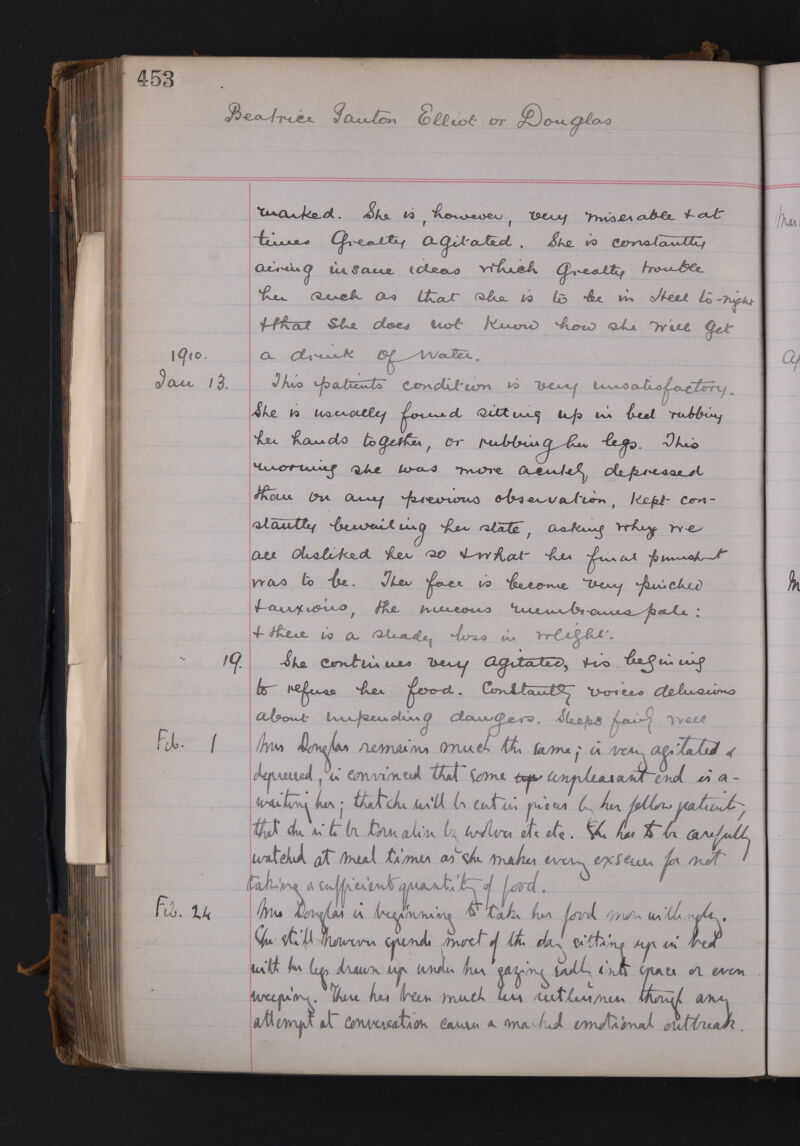 453
Beatrice Elliot or Douglas
marked. She is, however, very miserable & at
times Greatly agitated. She is constantly
airing insane ideas which Greatly trouble
her such as that she is to be in Hell to-night
& that She does not Know how she will Get
1910. a drink of Water.
Jan 13. This patients condition is very unsatisfactory.
She is usually found sitting up in bed rubbing
her hands together, or rubbing her legs. This
morning she was more acutely depressed
than on any previous observation, Kept con-
stantly bewailing her state, asking why we
all disliked her so & what her final punishment
was to be. Her face is become very pinched
& anxious, the mucous membranes pale:
& there is a steady loss in weight.
19. She continues very agitated, & is begining
to refuse her food. Constantly voices delusions
about impending dangers. Sleeps fairly well
Feb. 1 Mrs Douglas remains much the same; is very agitated &
depressed, is convinced that some unpleasant end is a-
waiting her; that she will be cut in pieces by her fellow patients,
that she is to be torn alive by wolves etc etc. She has to be carefully
watched at meal times as she makes every excuse for not
taking a sufficient quantity of food.
Feb. 24 Mrs Douglas is beginning to take her food more willingly.
She still however spends most of the day sitting up in bed
with her legs drawn up under her gazing sadly into space or even
weeping. There has been much less restlessness though any
attempt at conversation causes a marked emotional outbreak.